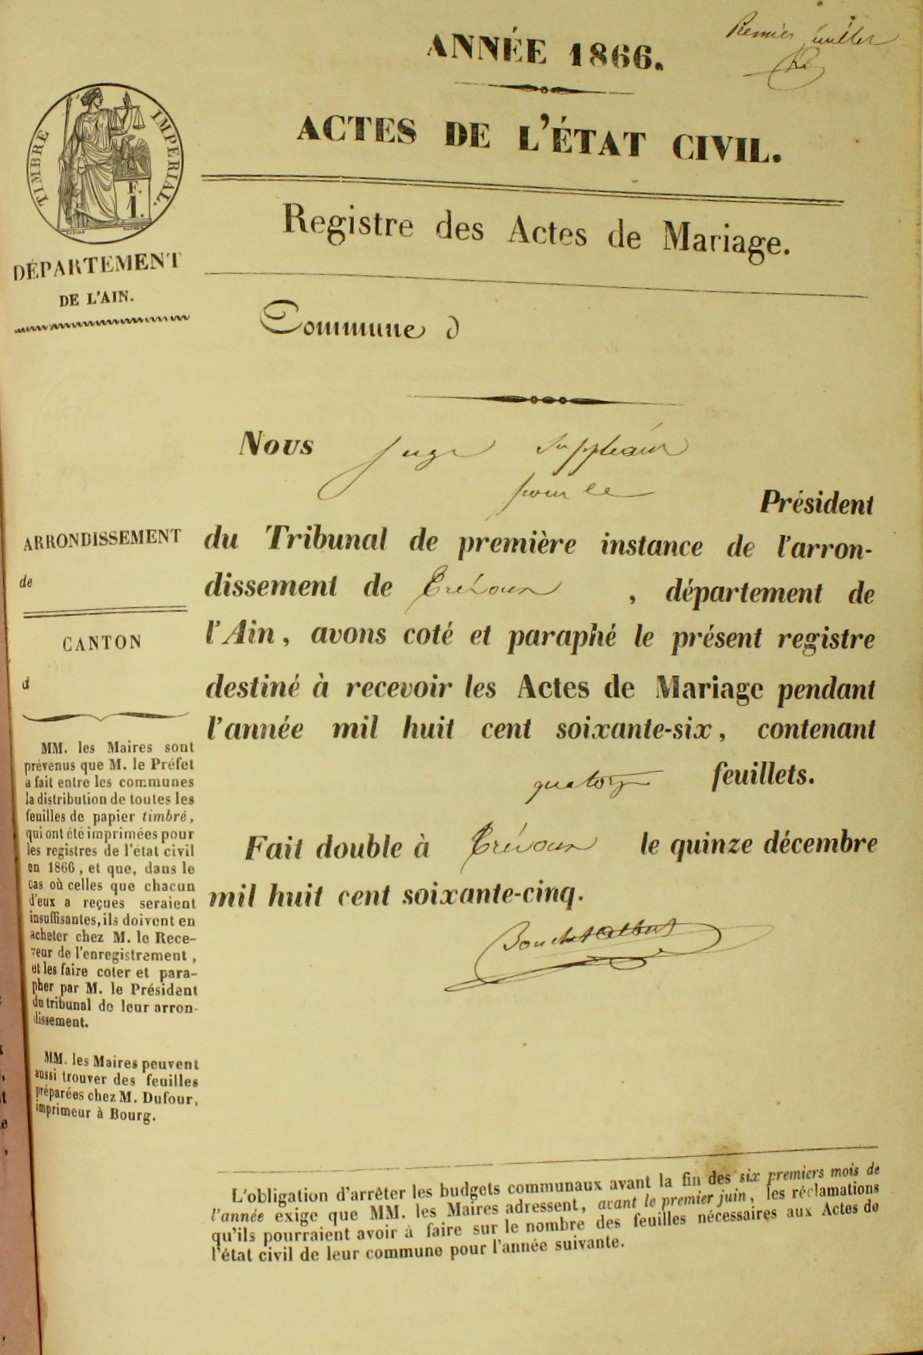 Premier feuillet
ANNÉE 1866.
ACTES DE L'ÉTAT CIVIL.
TIMBRE IMPÉRIAL.
F.
1.
Registre des Actes de Mariage.
DÉPARTEMENT
DE L'AIN.
Commune d
Nous Juge Suppléant
pour le
Président
du Tribunal de première instance de l'arron-
dissement de Trévoux, département de
l'Ain, avons coté et paraphé le présent registre
destiné à recevoir les Actes de Mariage pendant
l'année mil huit cent soixante-six, contenant
quatorze feuillets.
Fait double à Trévoux le quinze décembre
mil huit cent soixante-cinq.
ARRONDISSEMENT
de
CANTON
d
MM. les Maires sont
prévenus que M. le Préfet
a fait entre les communes
la distribution de toutes les
feuilles de papier timbré,
qui ont été imprimées pour
les registres de l'état civil
en 1866, et que, dans le
cas où celles que chacun
d'eux a reçues seraient
insuffisantes, ils doivent en
acheter chez M. le Rece-
veur de l'enregistrement,
et les faire coter et para-
pher par M. le Président
du tribunal de leur arron-
dissement.
MM. les Maires peuvent
aussi trouver des feuilles
préparées chez M. Dufour,
imprimeur à Bourg.
L'obligation d'arrêter les budgets communaux avant la fin des six premiers mois de
l'année exige que MM. les Maires adressent, avant le premier juin, les réclamations
qu'ils pourraient avoir à faire sur le nombre des feuilles nécessaires aux Actes de
l'état civil de leur commune pour l'année suivante.